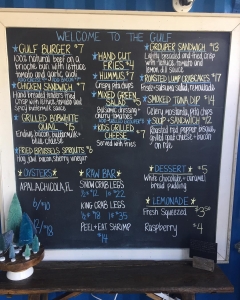 WELCOME TO THE GULF
GULF BURGER $7
100% natural beef on a
brioche bun with lettuce
tomato and garlic aioli
CHICKEN SANDWICH $7
Hand breaded tenders fried
crisp with lettuce tomato and
spicy buttermilk sauce
GRILLED BOBWHITE
QUAIL $5
Endive, bacon, buttermilk
blue cheese
FRIED BRUSSELS SPROUTS $6
Hog jowl bacon, sherry vinegar
OYSTERS
APALACHICOLA, FL
6/$10
12/$18
HAND CUT
FRIES $4
HUMMUS $7
Crispy pita chips
MIXED GREEN
SALAD $5
Balsamic dressing
cherry tomatoes
KIDS GRILLED
CHEESE $5
Served with fries
RAW BAR
SNOW CRAB LEGS
½ $12 1# $22
KING CRAB LEGS
½ $18 1# $35
PEEL+EAT SHRIMP
$14
GROUPER SANDWICH $13
Lightly breaded and fried crisp
with lettuce, tomato and
lemon dill sauce
ROASTED LUMP CRABCAKES $17
remoulade
SMOKED TUNA DIP $14
Celery, pita chips
SOUP + SANDWICH $12
Roasted red pepper bisque
grilled cheese + bacon
on rye
DESSERT $5
White chocolate + caramel
bread pudding
LEMONADE
Fresh Squeezed $3.50
Raspberry $4